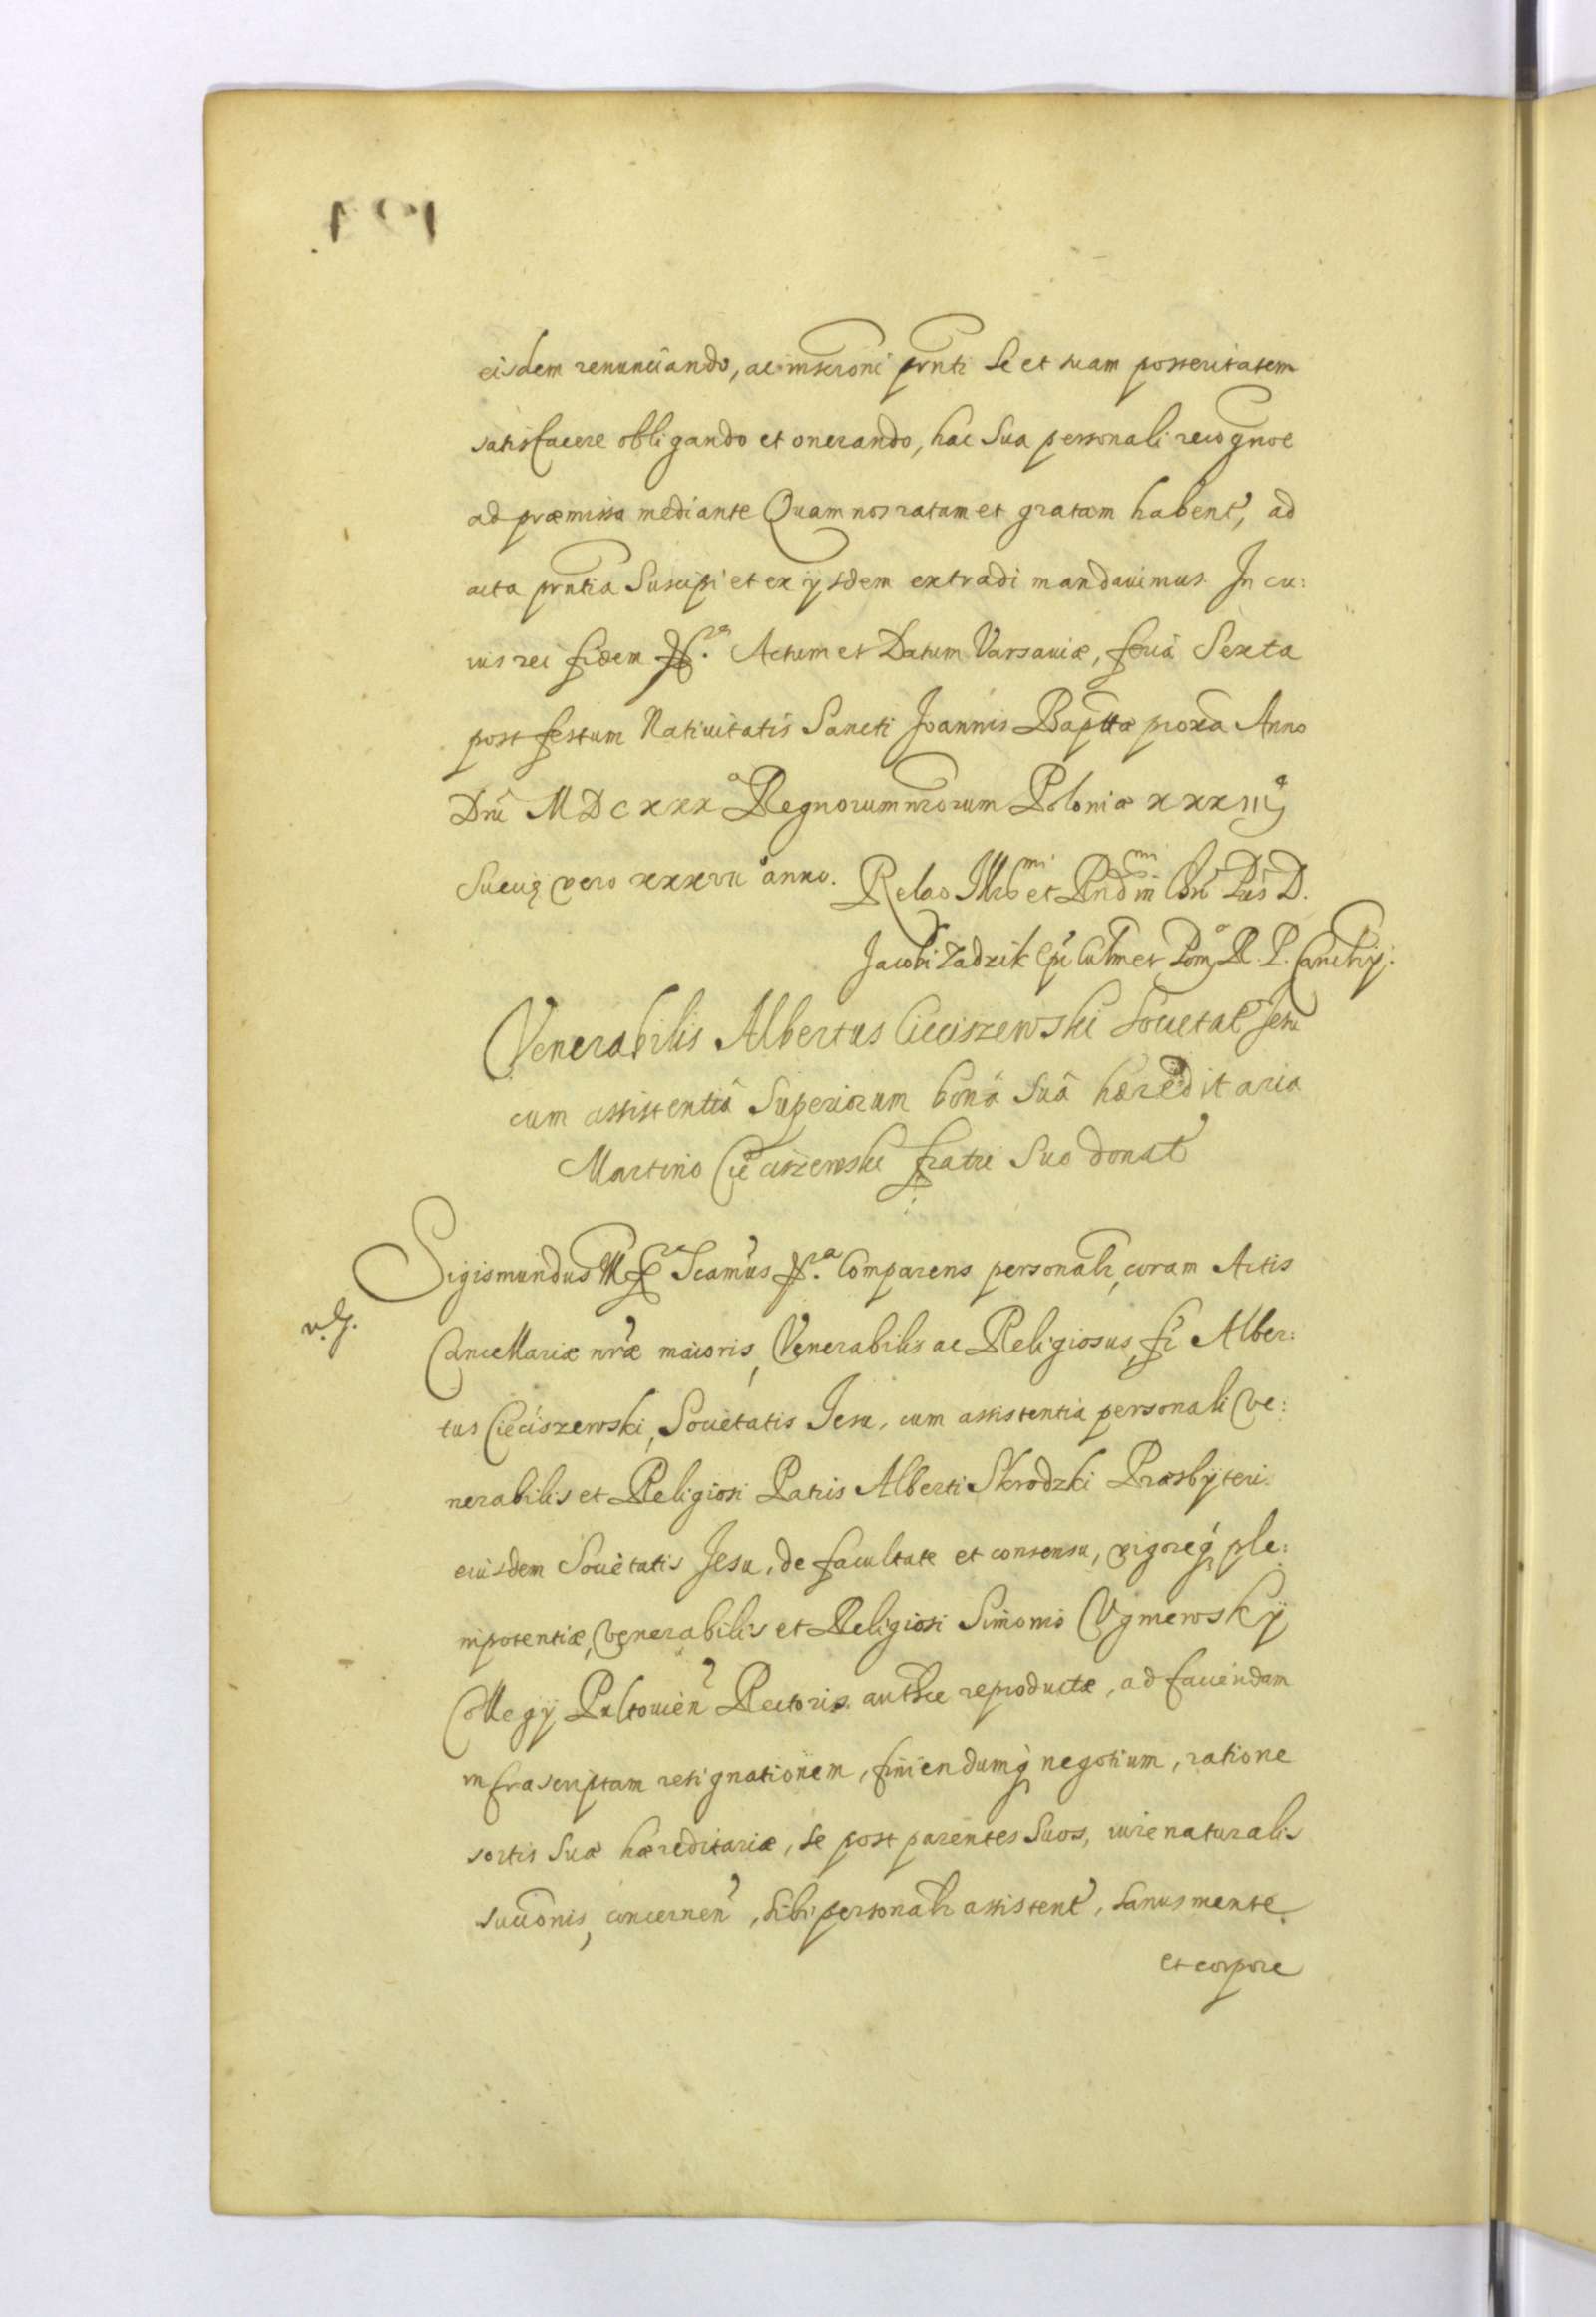 eisdem renunciando, ac inscroni prnti se et suam posteritatem
satisfacere obligando et onerando, hac sua personali recognoe
ad præmissa mediante Quam nos ratam et gratam habent, ad
acta prntia suscipi et ex ijsdem extradi mandauimus. In cu:
ius rei fidem Actum et Datum Varsauiæ, feria Sexta
post festum Natiuitatis Sancti Joannis Bapttæ proxa Anno
Dni MDCXXX Regnorum nrorum Poloniæ xxxiii
Sueciæ vero xxxvii anno. Relao Illrmi et Rndmi Dni D.
Jacobi Zadzik Epi Culmet Pom R. P. Cancrij:
Venerabilis Albertus Cieciszewski Societat Jesu
cum assistentiâ Superiorum bona sua hæreditaria
Martino Cieciszewski fratri suo donat
Sigismundus III Comparens personalr, coram Actis
v. g.
Cancellariæ nræ maioris, Venerabilis ac Religiosus, fr Alber:
tus Cieciszewski, Societatis Jesu, cum assistentia personali Ve:
nerabilis et Religiosi Patris Alberti Skrodzki Præsbyteri
eiusdem Societatis Jesu, de facultate et consensu, vigoreq ple:
nipotentiæ, Venerabilis et Religiosi Simonis Ugniewskÿ
Collegij Pultouien Rectoris authce reproductæ, ad faciendam
infrascriptam resignationem, finiendumq negotium, ratione
sortis suæ hæreditariæ, se post parentes suos, iure naturalis
succionis, concernen, sibi personalr assistent, sanus mente
et corpore